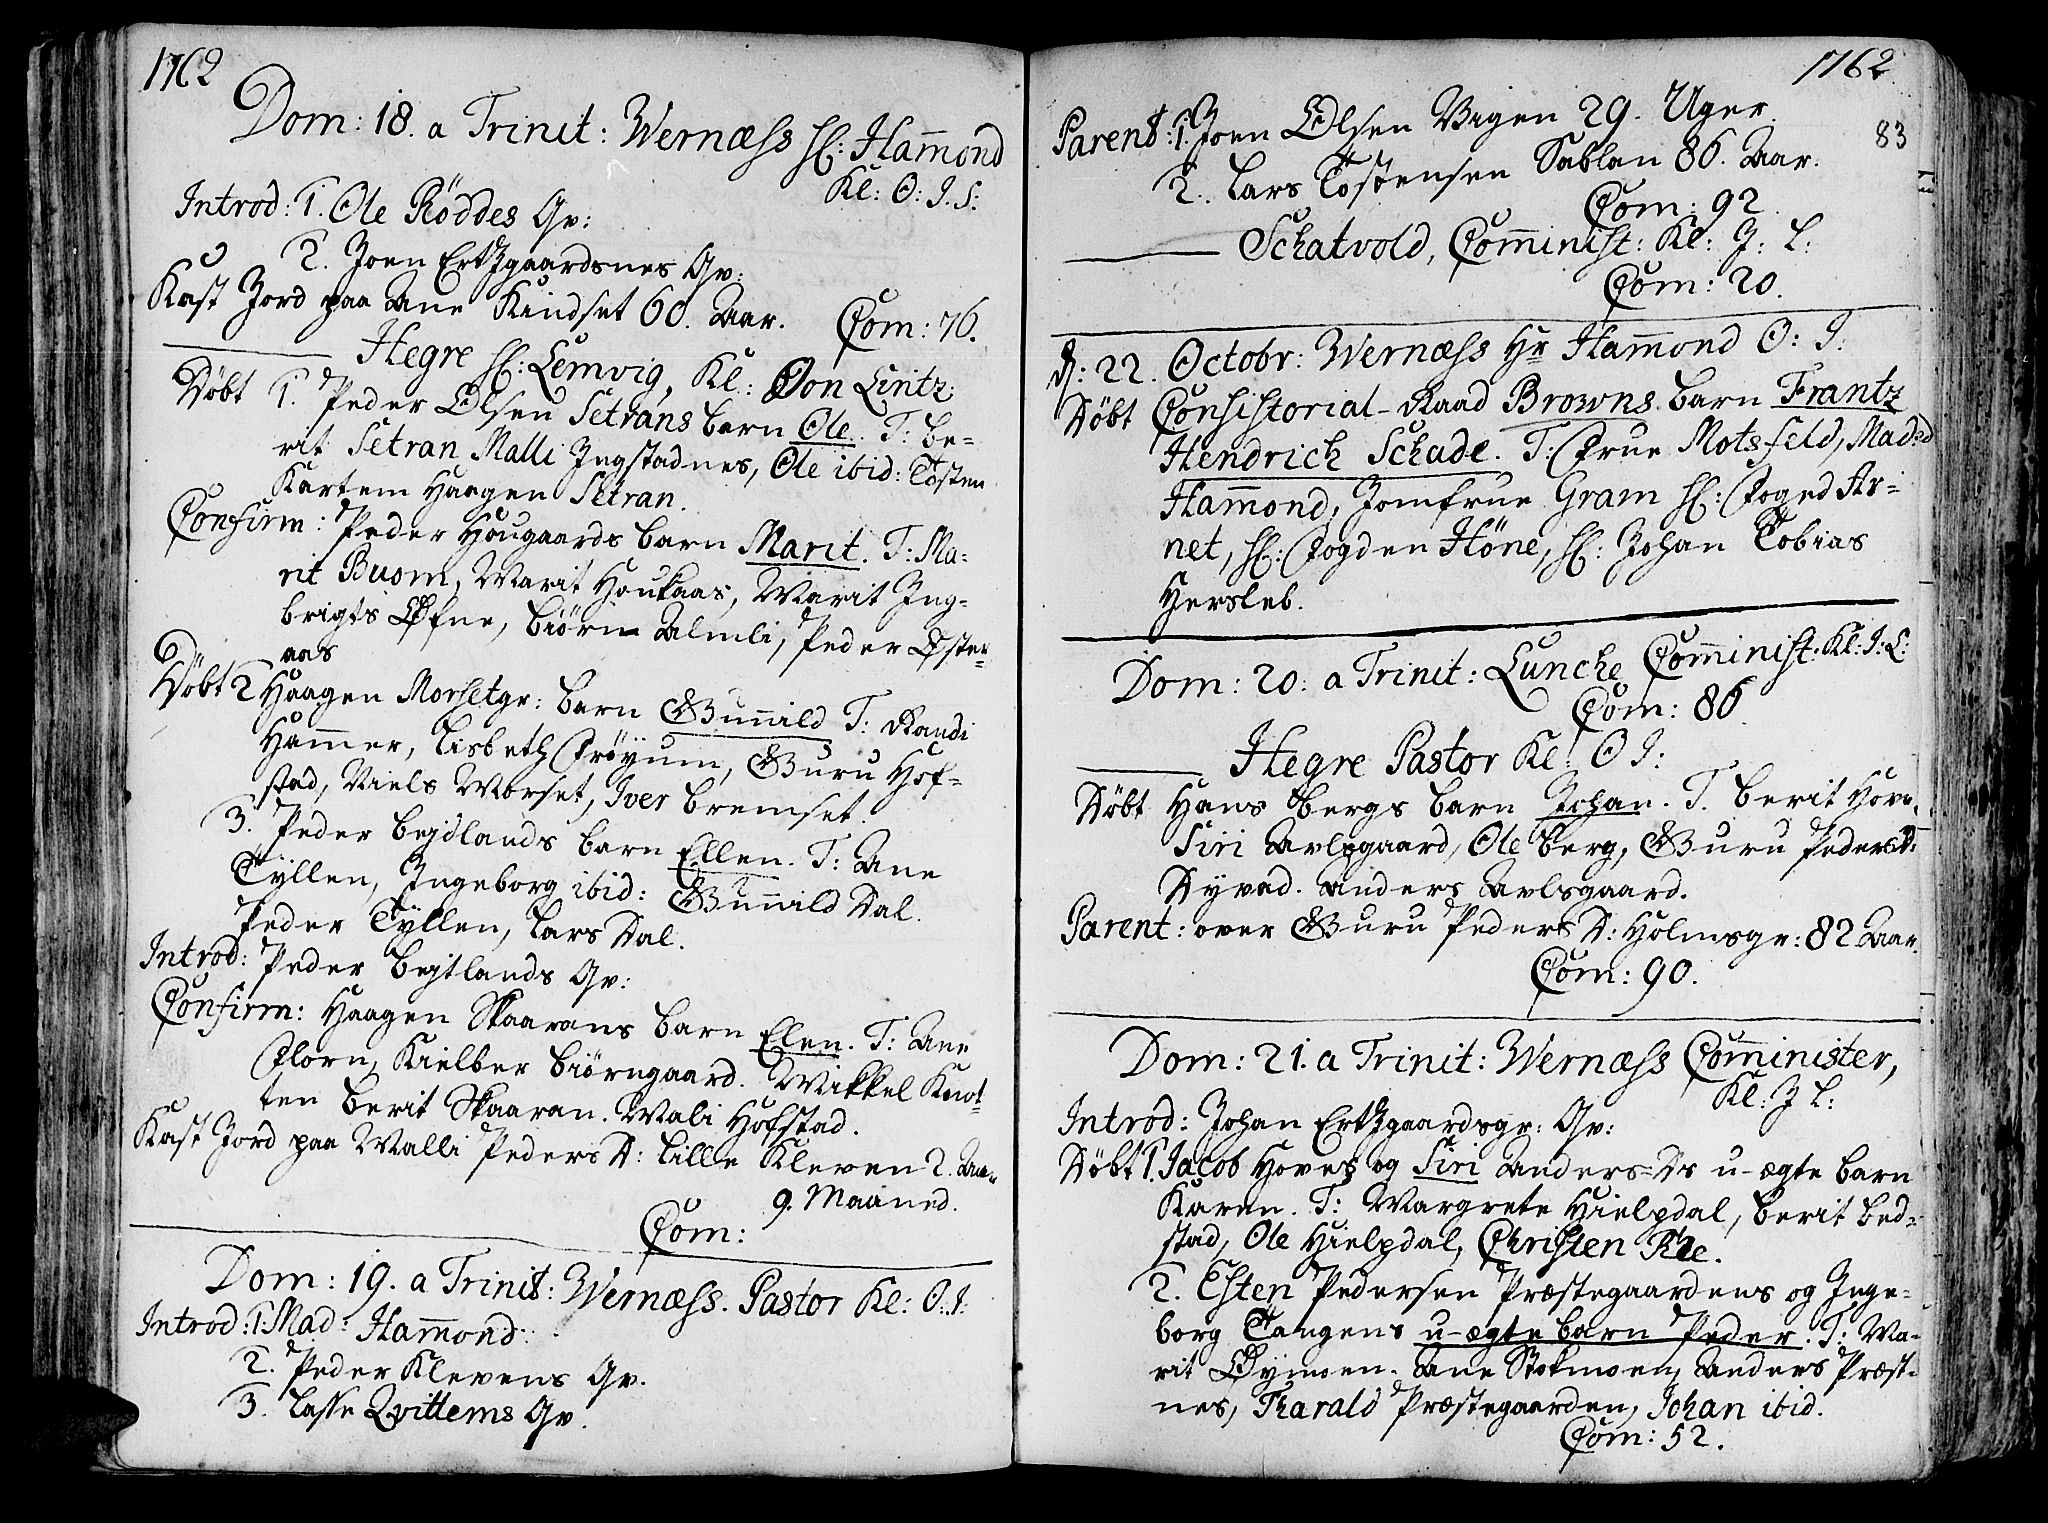 1762
Dom: 18. a Trinit: Wernæss H: Ham̄ond
Kl: O: J. S:
Introd: 1. Ole Röddes Qv:
2. Joen Ertzgaardsnes Qv:
Kast Jord paa Ane Kindset 60. Aar. Com: 76.
Hegre H: Lemvig, Kl: Jon Lintz:
Döbt 1. Peder Olsen Setrans barn Ole. T: Be=
rit Setran Malli Ingstadnes, Ole ibid: Tosten
Kartem Haagen Setran.
Confirm: Peder Hougaards barn Marit. T: Ma=
rit Buom, Marit Houkaas, Marit Ing=
brigts Øfne, Biörn Almli, Peder Øster=
aas
Döbt 2 Haagen Morsetgr: barn Gun̄ild T: Randi
Ham̄er, Lisbeth Fröyum, Guru Hof=
stad, Niels Morset, Iver Bremset.
3. Peder Bejtlands barn Ellen. T: Ane
Tyllen, Ingeborg ibid: Gun̄ild Dal.
Peder Tyllen, Lars Dal.
Introd: Peder Bejtlands Qv:
Confirm: Haagen Skaarans barn Elen. T: Ane
Florn, Kielber Biörngaard. Mikkel Knot=
ten Berit Skaaran. Mali Hofstad.
Kast Jord paa Malli Peders D: Lille Kleven 2. Aar
9. Maaned.
Com:
Dom: 19. a Trinit: Wernæss. Pastor Kl: O: J:
Introd: 1. Mad: Ham̄ond.
2. Peder Klevens Qv.
3. Lasse Qvittems Qv.
1762
83
Parent: 1. Joen Olsen Vigen 29. Uger.
2. Lars Tostensen Sablan 86. Aar.
Com: 92.
Schatvold, Com̄inist: Kl: J: L:
Com: 20.
D: 22. Octobr: Wernæss Hr Ham̄ond O: J:
Döbt Consistorial-Raad Browns barn Frantz
Hendrich Schade. T: Frue Motsfeld, Mad:
Ham̄ond, Jomfrue Gram H: Foged Ar=
net, H: Fogden Höne, H: Johan Tobias
Hersleb.
Dom: 20: a Trinit: Lunche Com̄inist: Kl: J: L:
Com: 86.
Hegre Pastor Kl: O J:
Döbt Hans Bergs barn Johan. T. Berit Hove,
Siri Avlsgaard, Ole Berg, Guru Peders D:
Dyvad. Anders Avlsgaard.
Parent: over Guru Peders D: Holmsgr: 82 Aar.
Com: 90.
Dom: 21. a Trinit: Wernæss Com̄inister,
Kl: J L:
Introd: Johan Ertzgaardsgr: Qv:
Döbt 1. Jacob Hoves og Siri Anders=Ds u-ægte barn
Karen. T: Margrete Hielpdal, Berit Bed=
stad, Ole Hielpdal, Christen Ree.
2. Esten Pedersen Præstegaardens og Inge=
borg Tangens u-ægte barn Peder. T: Ma=
rit Øymoen. Ane Stokmoen, Anders Præst=
nes, Tharald Præstegaarden, Johan ibid.
Com: 52.